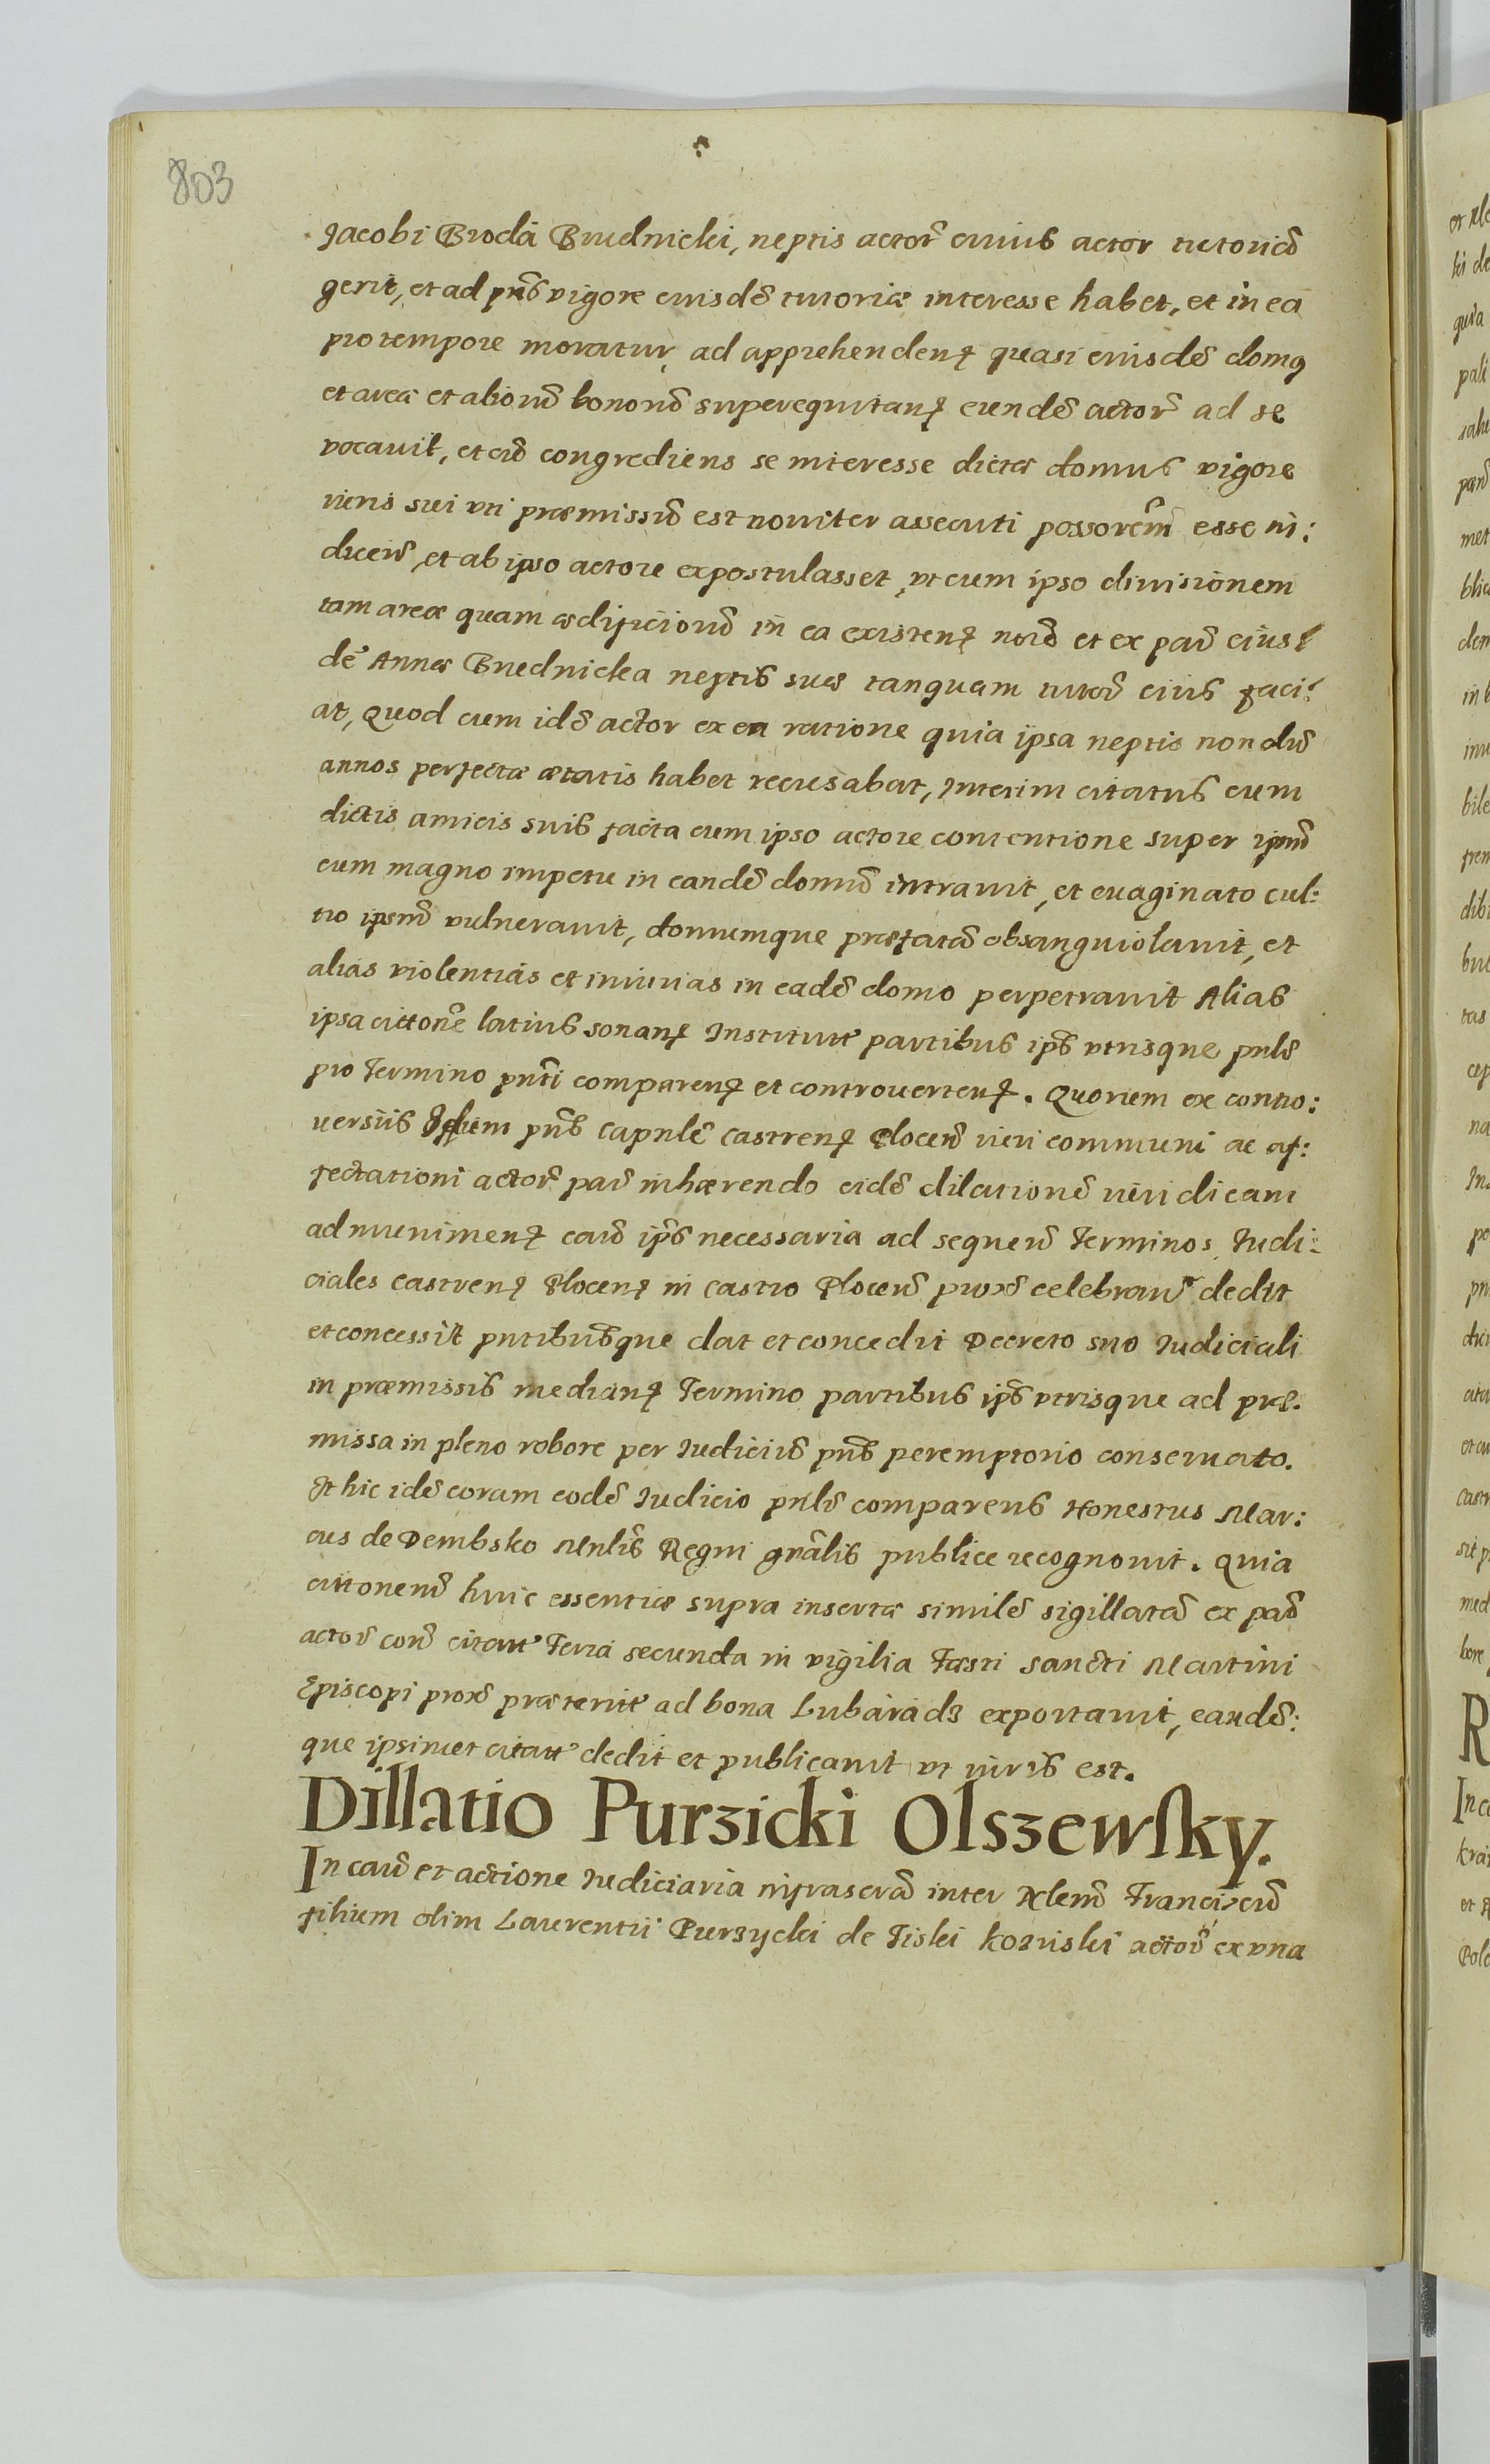 803
Jacobi Broda Brudnicki, neptis actor̃ cuius actor tutoriã
gerit, et ad pñs vigore eiusdẽ tutoriæ interesse habet, et in ea
pro tempore moratur, ad apprehendenꝭ quasi eiusdẽ domꝰ
et areæ et aliorũ bonorũ superequitanꝭ eundẽ actor̃ ad se
vocauit, et eũ congrediens se interesse dictæ domus vigore
iuris sui vti præmissũ est nouiter assecuti possorẽm esse in:
diceñ, et ab ipso actore expostulasset, vt cum ipso diuisionem
tam areæ quam ædificiorũ in ea existenꝭ noiẽ et ex pañ eius
dẽ Annæ Brudnicka neptis suæ tanquam tutor̃ eius faci:
at, Quod cum idẽ actor ex ea ratione quia ipsa neptis nondũ
annos perfectæ ætatis habet recusabat, Interim citatus cum
dictis amicis suis facta cum ipso actore contentione super ipm̃
cum magno impetu in eandẽ domũ intrauit, et euaginato cul:
tro ipsũm vulnerauit, domumque præfatã obsanguiolauit, et
alias violentias et iniurias in eadẽ domo perpetrauit Alias
ipsa citt̃one latius sonanꝭ Institutæ partibus ip̃s vtrisque pñlr̃
pro Termino pñti comparenꝭ et controuertenꝭ. Quorum ex contro:
uersiis Iudicium pñs capñle castrenꝭ Plocen̄ iuri communi ac af:
fectationi actor̃ pañ inhærendo eidẽ dilationẽ iuridicam
ad munimenꝭ cauã ip̃s necessaria ad sequeñ Terminos Iudi:
ciales castrenꝭ Plocenꝭ in castro Plocen̄ proxẽ celebrañ dedit
et concessit pñtibusque dat et concedit Decreto suo Iudiciali
in præmissis medianꝭ Termino partibus ip̃s vtrisque ad præ:
missa in pleno robore per Iudiciũ pñs peremptorio conseruato.
Et hic idẽ coram eodẽ Iudicio pñlr̃ comparens Honestus Mar:
cus de Dembsko Mñlis Regni gñalis publice recognouit. Quia
cittonem̃ huic essentiæ supra insertæ similẽ sigillatã ex pañ
actor̃ coñ citatũ Feria secunda in vigilia Festi sancti Martini
Episcopi proxẽ præterite ad bona Lubaradz exportauit, eandẽ:
que ipsimet citato dedit et publicauit vt iuris est.
Dillatio Purzicki Olszewsky.
In cauã et actione Iudiciaria infrascrã inter Nblem̃ Franciscũ
filium olim Laurentii Purzycki de Tiski korziski actor̃ ex vna